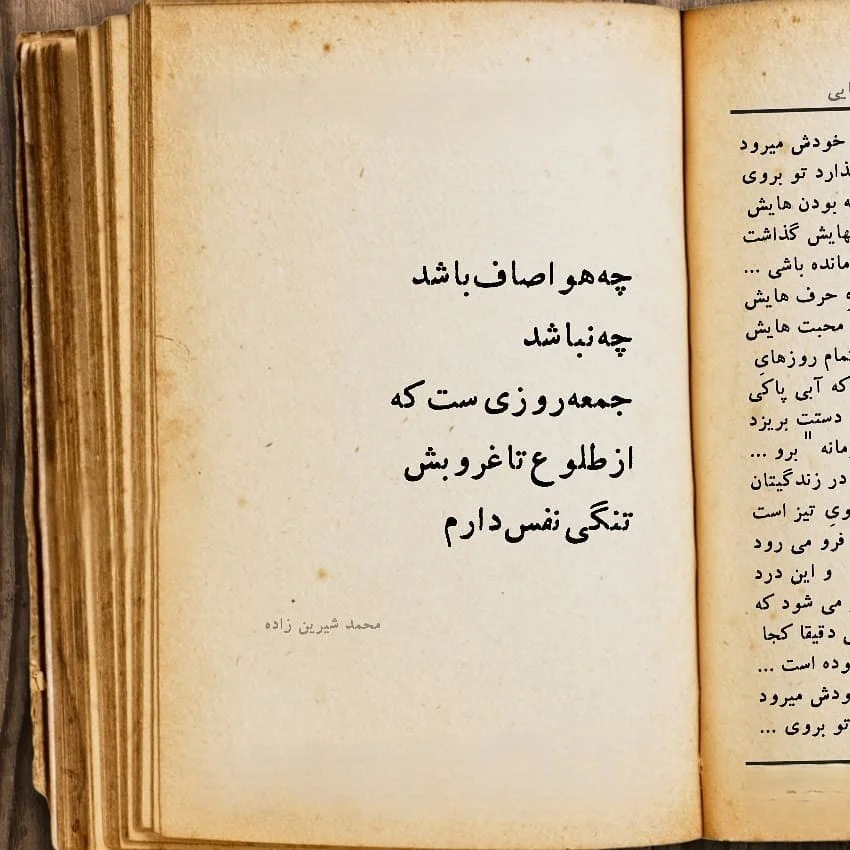 چه هوا صاف باشد
چه نباشد
جمعه روزی ست که
از طلوع تا غروبش
تنگی نفس دارم
محمد شیرین زاده
خودش میرود
تو بروی
بودن هایش
گذاشت
مانده باشی ...
حرف هایش
محبت هایش
روزهایِ
که آبی پاکی
دستت بریزد
" برو ...
در زندگیتان
تیز است
فرو می رود
و این درد
می شود که
دقیقا کجا
است ...
میرود
تو بروی ...